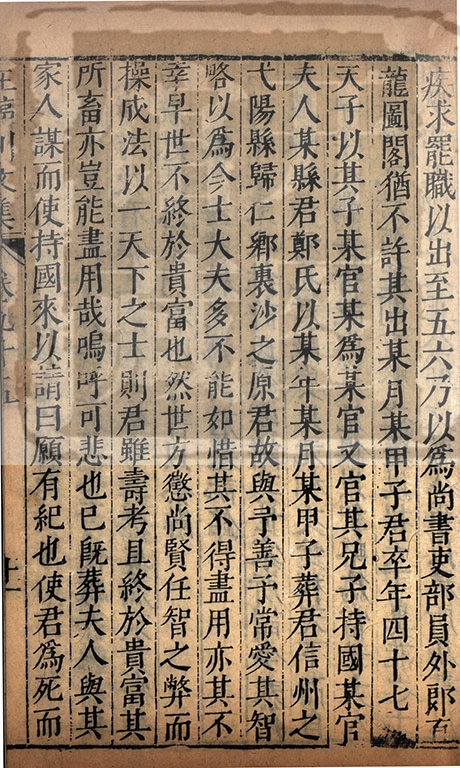 疾求罷職以出至五六乃以爲尚書吏部員外郎直
龍圖閣猶不許其出某月某甲子君卒年四十七
天子以其子某官某爲某官又官其兄子持國某官
夫人某縣君鄭氏以某年某月某甲子葬君信州之
弋陽縣歸仁鄉裏沙之原君故與予善予常愛其智
略以爲今士大夫多不能如惜其不得盡用亦其不
幸早世不終於貴富也然世方懲尚賢任智之弊而
操成法以一天下之士則君雖壽考且終於貴富其
所畜亦豈能盡用哉嗚呼可悲也已旣葬夫人與其
家人謀而使持國來以請曰願有紀也使君爲死而
王臨川文集 卷九十五 十一